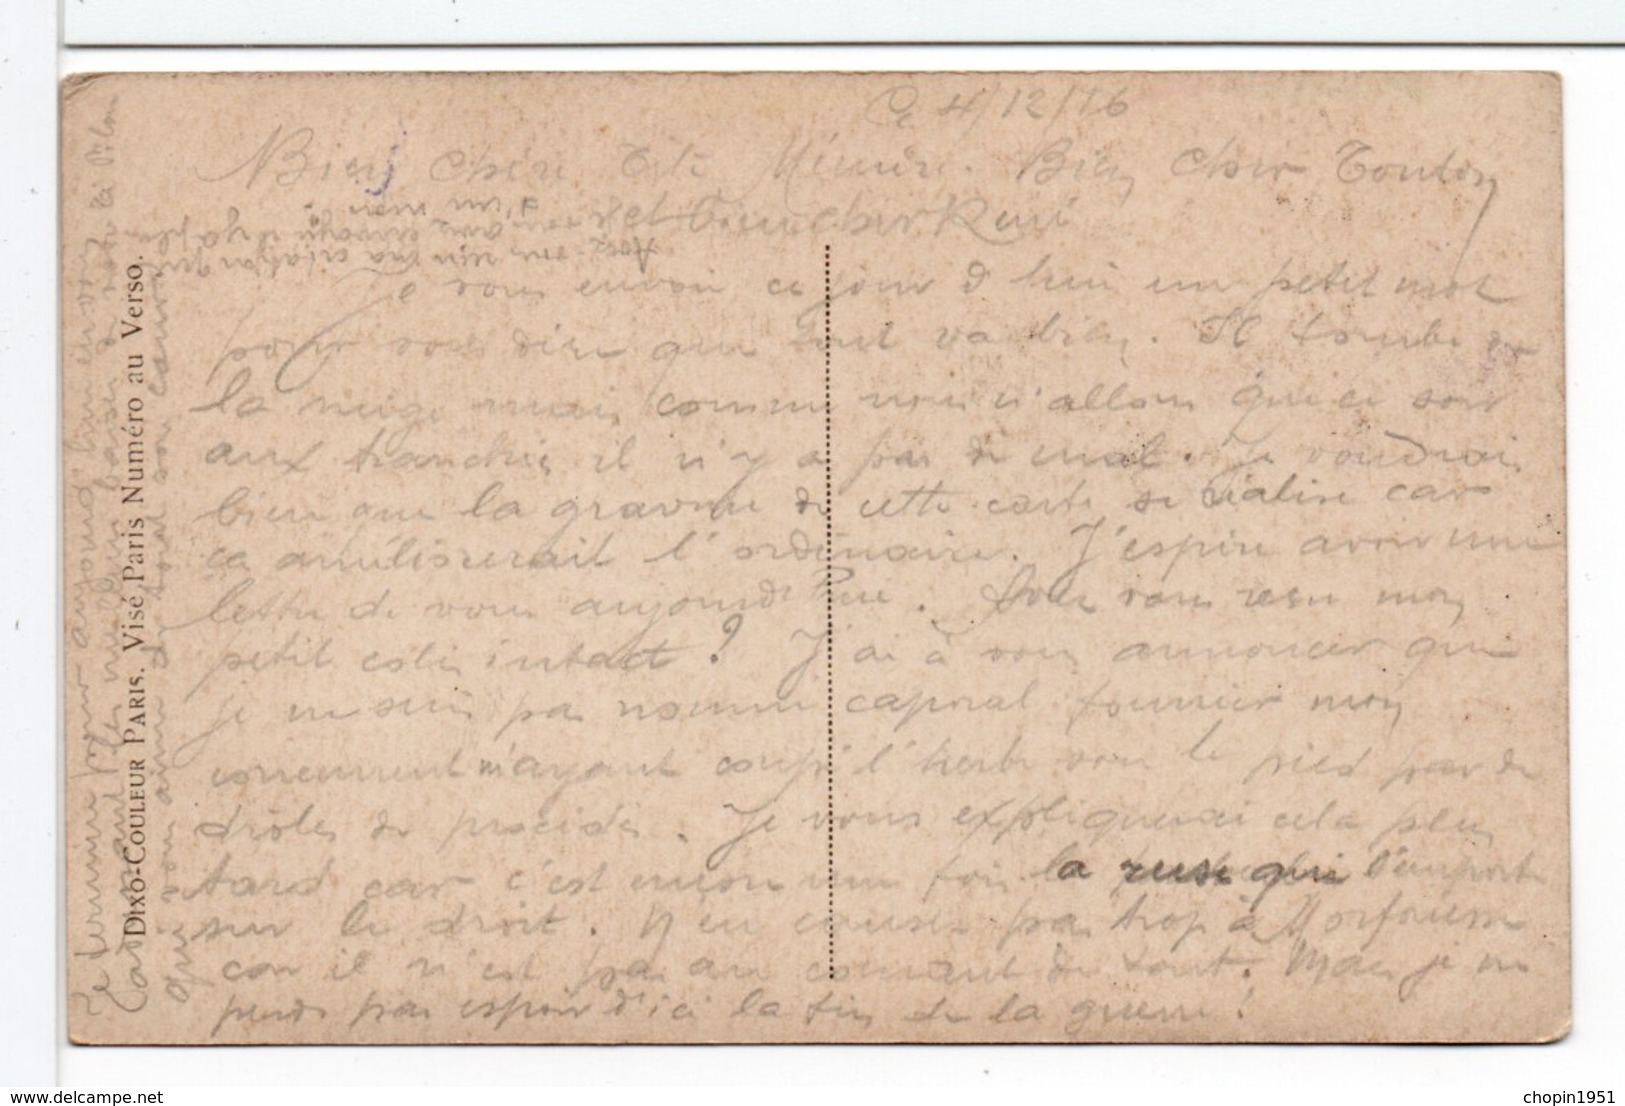 Ce 4/12/16
Bien chère Mémère. Bien cher Tonton
et bien cher René
Je vous envoie ce jour d'hui un petit mot
pour vous dire que tout va bien. Il tombe de
la neige mais comme nous n'allons que ce soir
aux tranchées il n'y a pas de mal. Je voudrais
bien que la gravure de cette carte se réalise car
ca améliorerait l'ordinaire. J'espère avoir une
lettre de vous aujourd'hui. Avez vous reçu mon
petit colis intact ? J'ai à vous annoncer que
je ne suis pas nommé caporal fourrier mon
concurrent m'ayant coupé l'herbe sous le pied par de
drôles de procédés. Je vous expliquerai cela plus
tard car c'est encore une fois la ruse qui l'emporte
sur le droit. N'en causez pas trop à
car il n'est pas au courant de tout. Mais je ne
perds pas espoir d'ici la fin de la guerre !
Je termine pour aujourd'hui en vous
envoyant les meilleurs baisers de votre
qui vous aime de tout son coeur
Avez-vous reçu ma citation que
je vous ai envoyé il y a plus
d'un mois
DIXO-COULEUR PARIS. Visé Paris Numéro au Verso.
https://www.delcampe.net
chopin1951